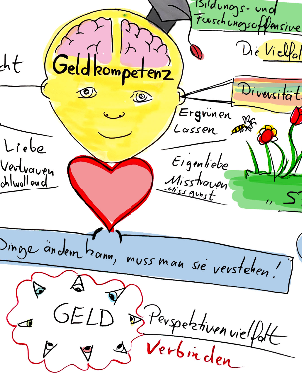 Bildungs- und
Forschungsoffensive
Die Vielfalt
Geldkompetenz
cht
Diversität
Ergrünen
Lassen
Liebe
Vertrauen
ohlwollend
Eigenliebe
Misstrauen
Missgunst
S
Dinge ändern kann, muss man sie verstehen!
GELD
Perspektivenvielfalt
Verbinden